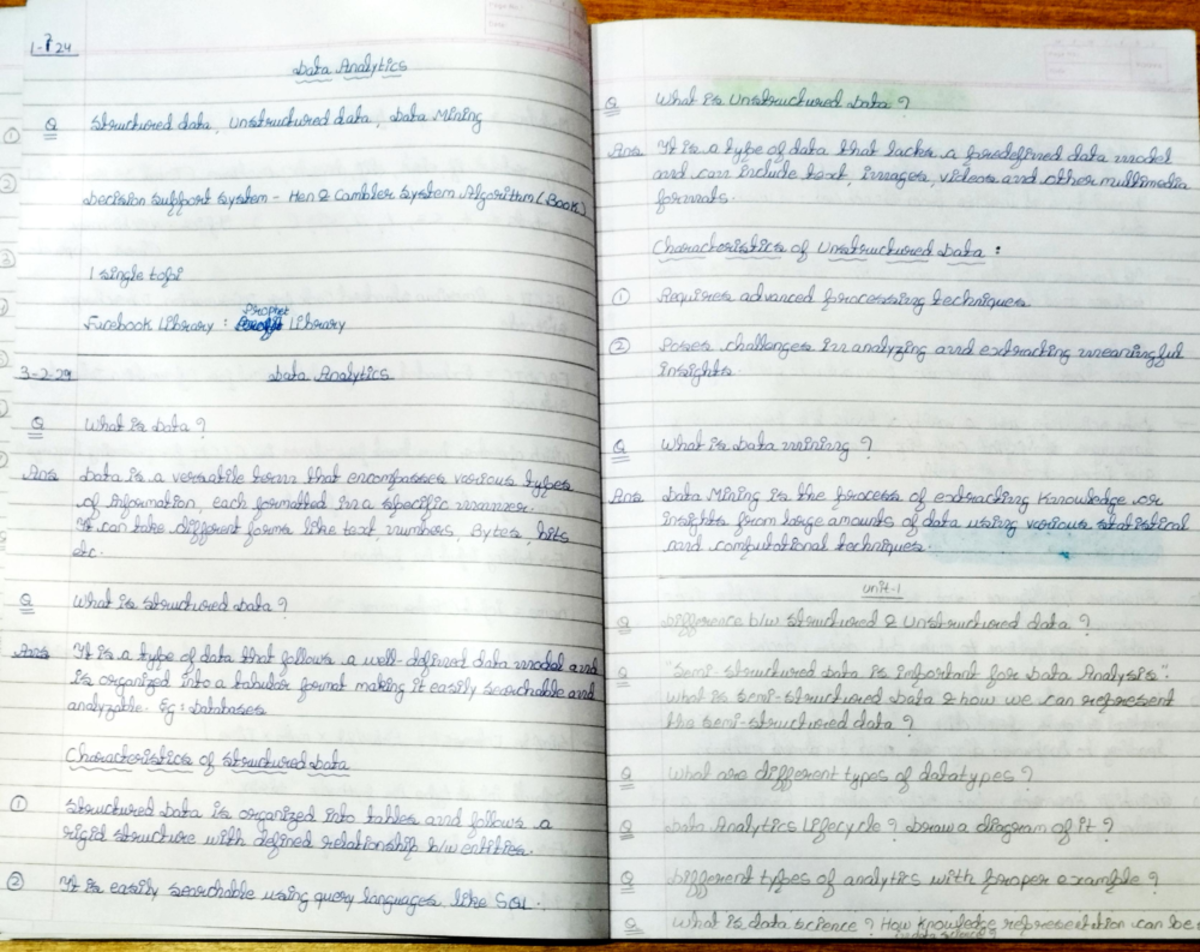 1-7 24
Data Analytics
Q Structured data, Unstructured data, Data Mining
Decision Support System - Hen & Cambler System Algorithm (Book)
1 single topi
Prophet
Facebook Library : Library
3-2-24
Data Analytics
Q What is Data ?
Ans Data is a versatile term that encompasses various types
of information, each formatted in a specific manner.
It can take different forms like text, numbers, Bytes, bits
etc.
Q What is Structured Data ?
Ans It is a type of data that follows a well-defined data model and
is organized into a tabular format making it easily searchable and
analyzable. Eg : Databases
Characteristics of Structured Data
① Structured Data is organized into tables and follows a
rigid structure with defined relationship b/w entities.
② It is easily searchable using query languages like SQL.
Q What is Unstructured Data ?
Ans It is a type of data that lacks a predefined data model
and can include text, images, videos and other multimedia
formats.
Characteristics of Unstructured Data :
① Requires advanced processing techniques
② Poses challanges in analyzing and extracting meaningful
insights.
Q What is Data mining ?
Ans Data Mining is the process of extracting Knowledge or
insights from large amounts of data using various statistical
and computational techniques.
Unit-1
Q Difference b/w Structured & Unstructured data ?
Q "Semi-structured data is important for Data Analysis".
What is Semi-structured Data & how we can represent
the semi-structured data ?
Q What are different types of datatypes ?
Q Data Analytics Lifecycle ? Draw a diagram of it ?
Q Different types of analytics with proper example ?
Q What is data science ? How knowledge representation can be